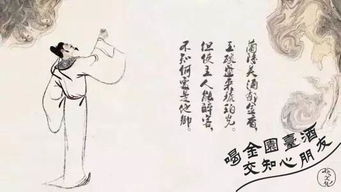 蘭陵美酒郁金香，
玉碗盛來琥珀光。
但使主人能醉客，
不知何處是他鄉。
喝金園臺酒
交知心朋友